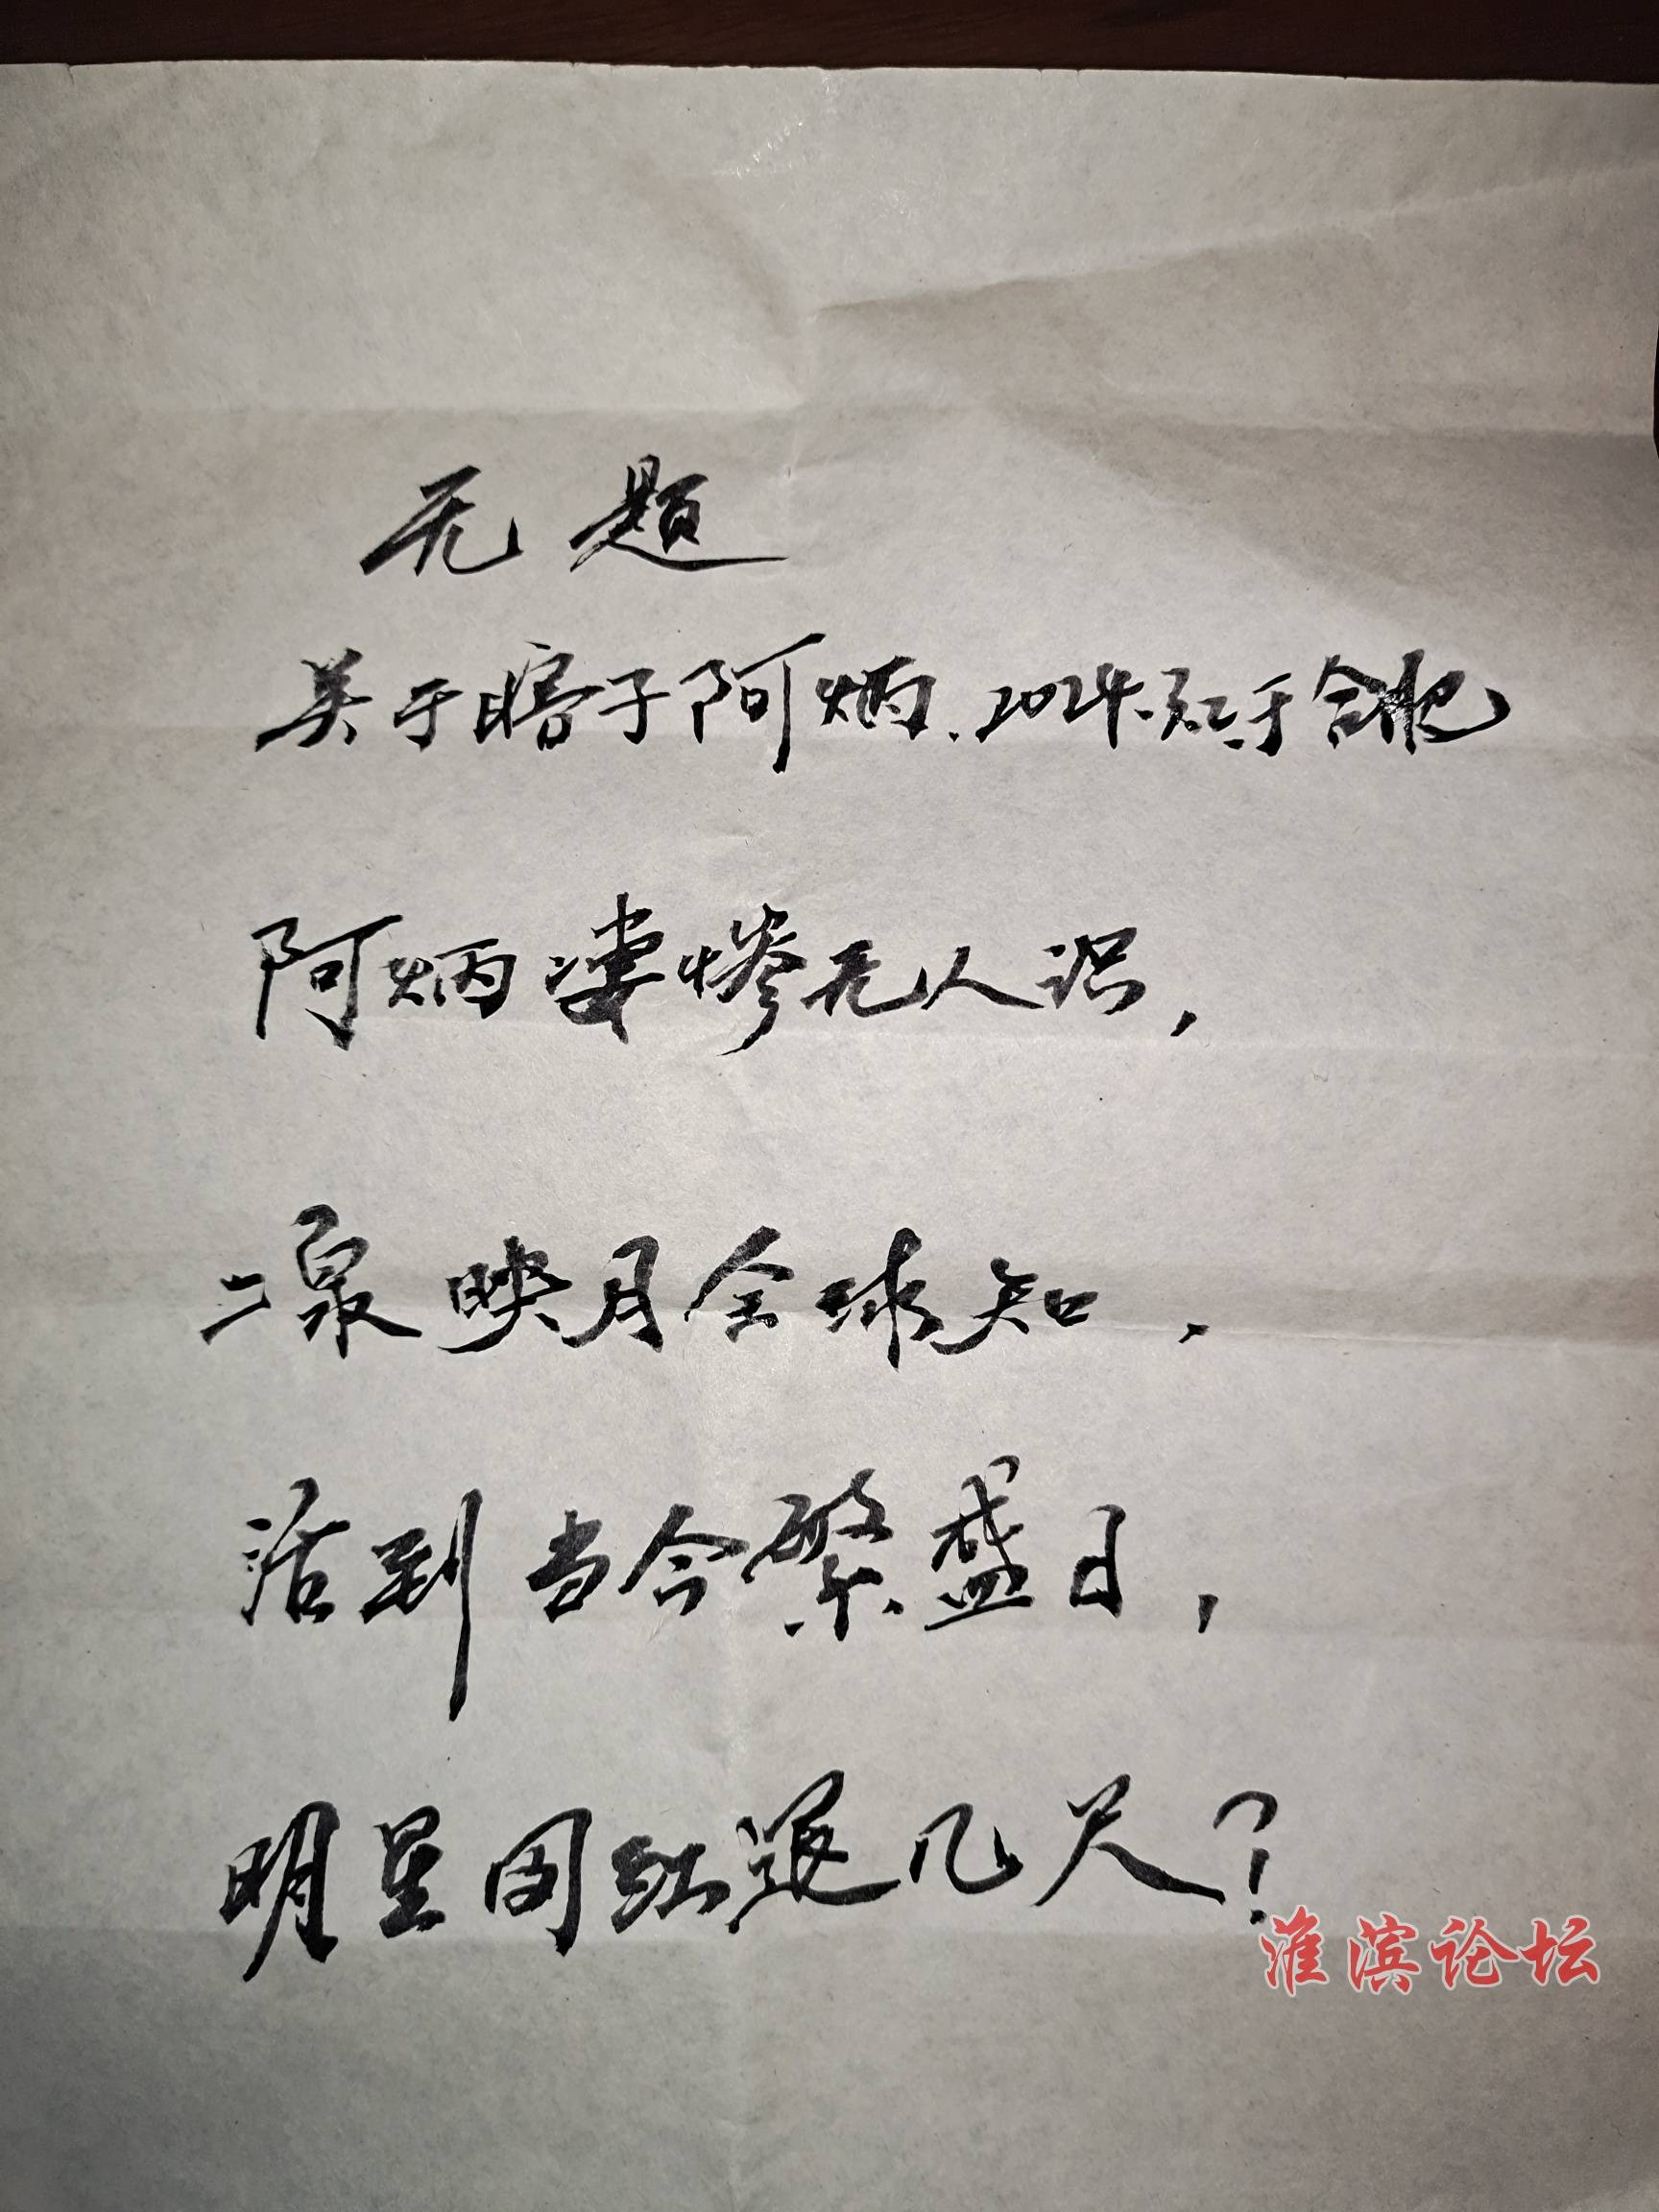 无题
关于瞎子阿炳.2024.于合肥
阿炳凄惨无人识,
二泉映月全球知,
活到当今繁盛日,
明星网红退几尺?
淮滨论坛